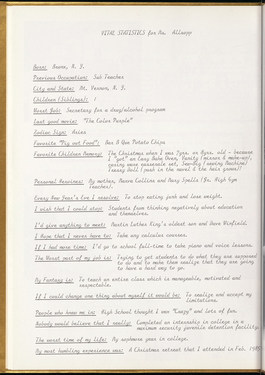 VITAL STATISTICS for Ms. Allsopp
Born: Bronx, N.Y.
Previous Occupation: Sub Teacher
City and State: Mt. Vernon, N.Y.
Children (Siblings): 1
Worst Job: Secretary for a drug/alcohol program
Last good movie: "The Color Purple"
Zodiac Sign: Aries
Favorite "Pig out Food": Bar B Que Potato Chips
Favorite Childhood Memory: The Christmas when I was 7yrs. or 8yrs. old - because
I "got" an Easy Bake Oven, Vanity (mirror & make-up),
Personal Heroines: My mother, Marva Collins and Mary Spells (Jr. High Gym
Teacher).
Every New Year's Eve I resolve: To stop eating junk and lose weight.
I wish that I could stop: Students from thinking negatively about education
and themselves.
I'd give anything to meet: Martin Luther King's oldest son and Dave Winfield.
I know that I never have to: Take any calculus courses.
If I had more time: I'd go to school full-time to take piano and voice lessons.
The Worst part of my job is: Trying to get students to do what they are supposed
to do and to make them realize that they are going
to have a hard way to go.
My Fantasy is: To teach an entire class which is manageable, motivated and
respectable.
If I could change one thing about myself it would be: To realize and accept my
limitations.
People who knew me in: High School thought I was "Crazy" and lots of fun.
Nobody would believe that I really: Completed an internship in college in a
maximum security juvenile detention facility.
The worst time of my life: My sophomore year in college.
My most humbling experience was: A Christmas retreat that I attended in Feb.